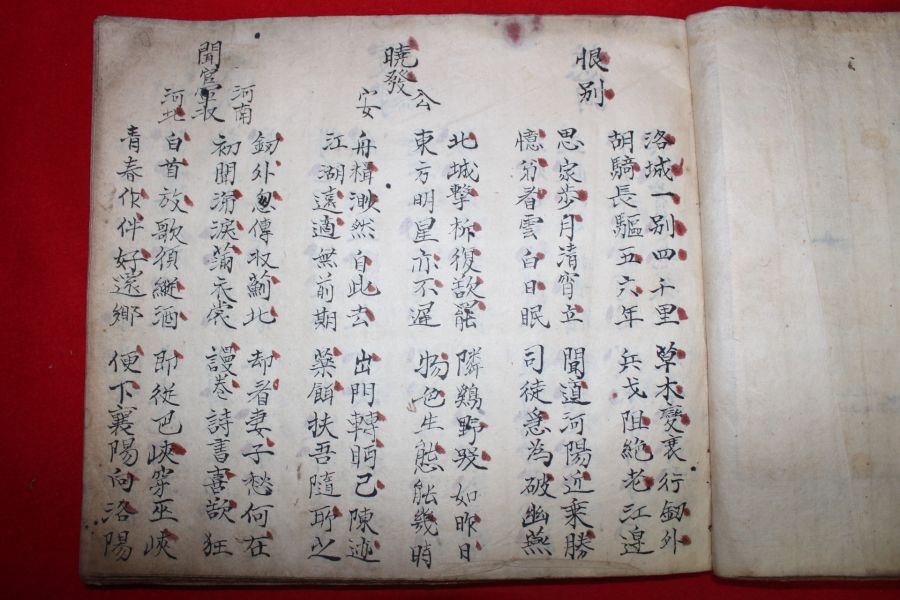 恨别
洛城一别四千里 草木變衰行釼外
胡騎長驅五六年 兵戈阻絶老江邊
思家步月清宵立 聞道河陽近乗勝
憶弟看雲白日眠 司徒急為破幽燕
曉發公安
北城擊柝復欲罷 隣鷄野哭如昨日
東方明星亦不遲 物色生態能幾時
舟楫渺然自此去 出門轉眄已陳迹
江湖遠適無前期 藥餌扶吾隨所之
聞官軍収河南河北
釼外忽傳収薊北 却看妻子愁何在
初聞涕淚滿衣裳 謾卷詩書喜欲狂
白首放歌須縱酒 即從巴峽穿巫峽
青春作伴好還鄉 便下襄陽向洛陽